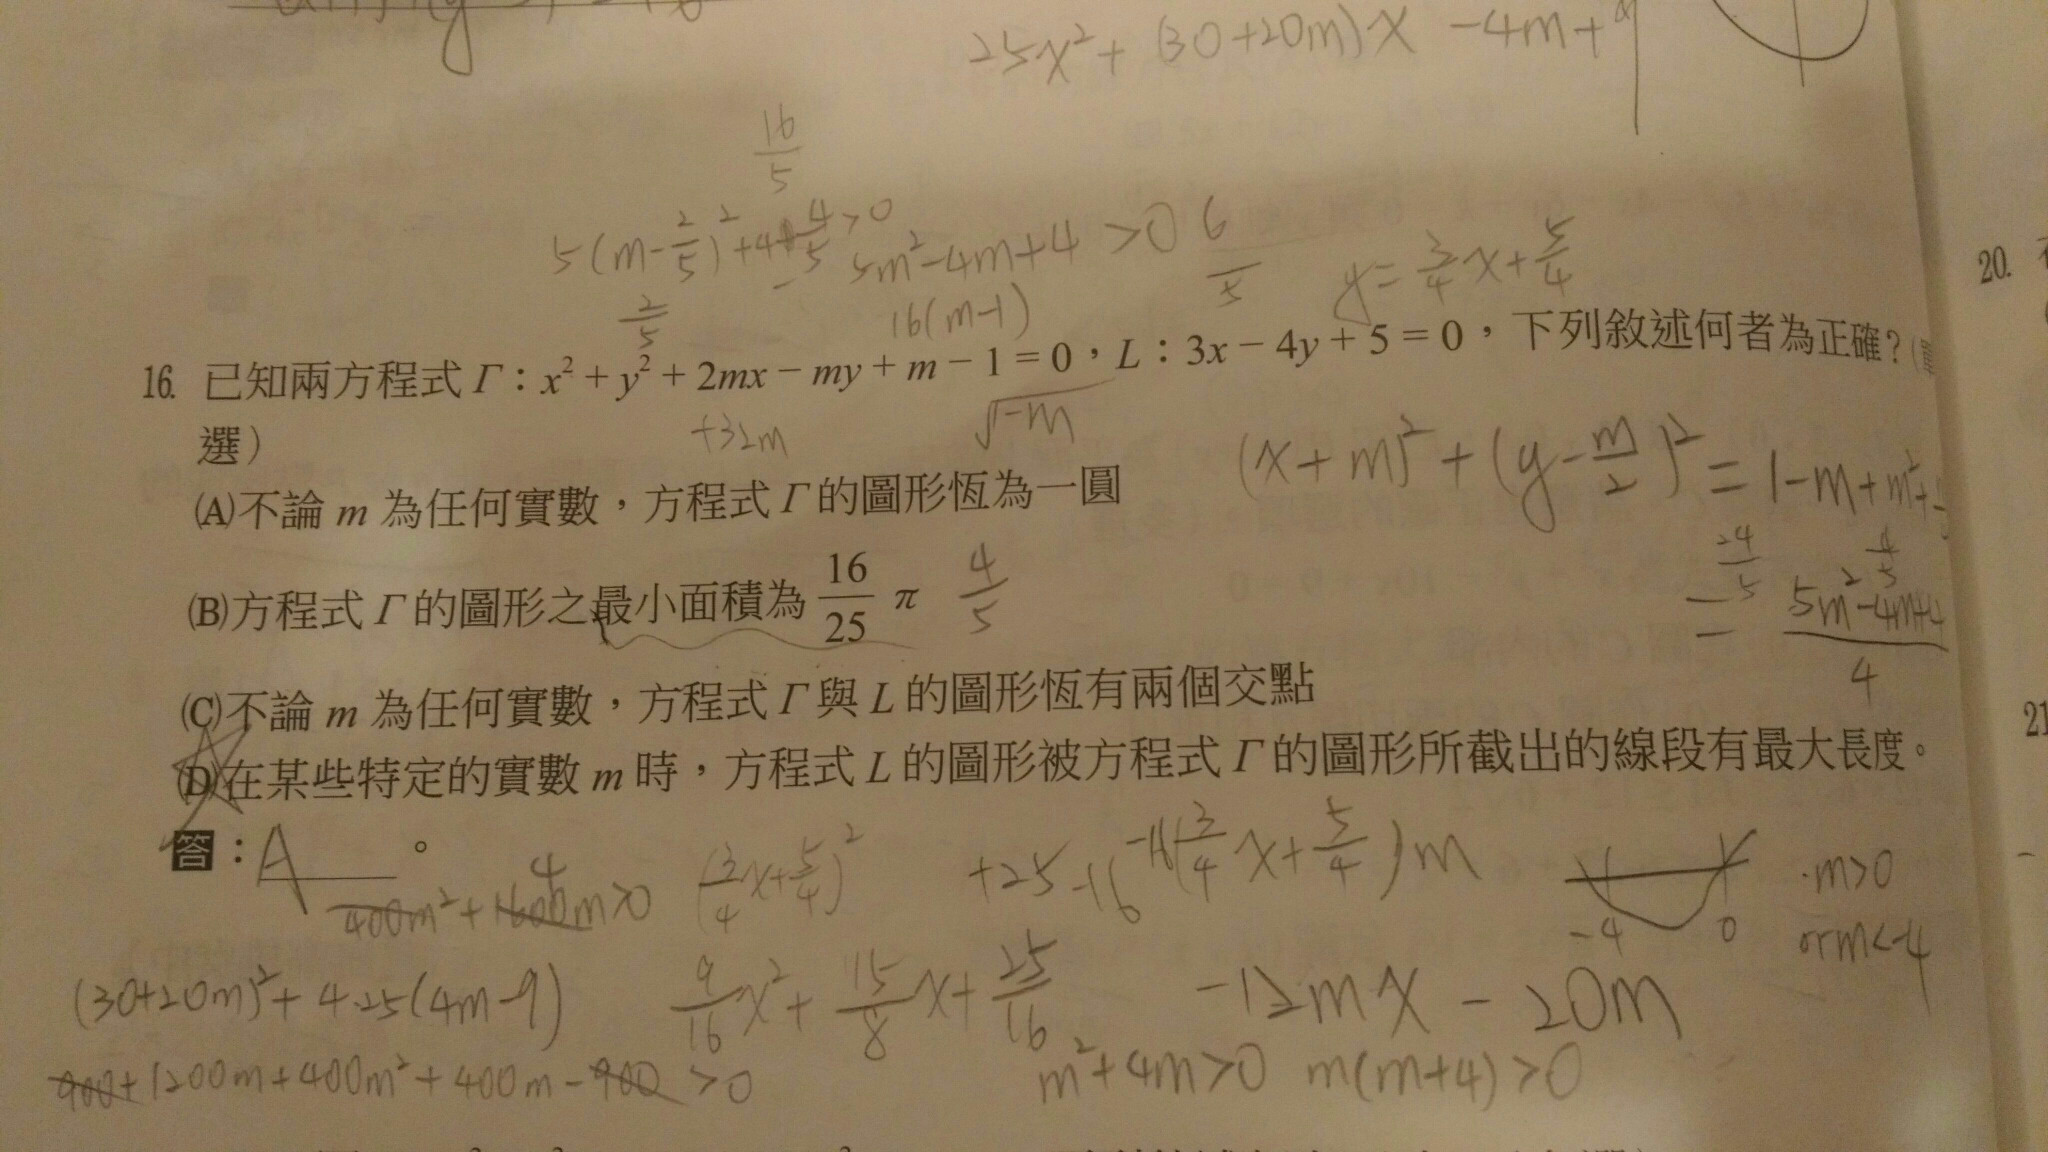 25x² + (30+20m)x -4m+9
16/5
5(m-2/5)²+4-4/5>0
5m²-4m+4 >0
6/5
y=3/4x+5/4
2/5
16(m-1)
20.
16. 已知兩方程式Γ：x²+y²+2mx-my+m-1=0，L：3x-4y+5=0，下列敘述何者為正確？
選）
+32m
√-m
(x+m)²+(y-m/2)²=1-m+m²+
(A)不論 m 為任何實數，方程式Γ的圖形恆為一圓
24/5
4/5
= 5m²-4m+4/4
(B)方程式Γ的圖形之最小面積為 16/25 π
4/5
(C)不論 m 為任何實數，方程式Γ與L的圖形恆有兩個交點
21
(D)在某些特定的實數 m 時，方程式L的圖形被方程式Γ的圖形所截出的線段有最大長度。
答：A。
(3/4x+5/4)²
+25-16
-16(3/4x+5/4)m
-4 0
m>0
or m<-4
400m²+1600m>0
4
(30+20m)²+4·25(4m-9)
9/16x²+15/8x+25/16
-12mx-20m
900+1200m+400m²+400m-900>0
m²+4m>0 m(m+4)>0